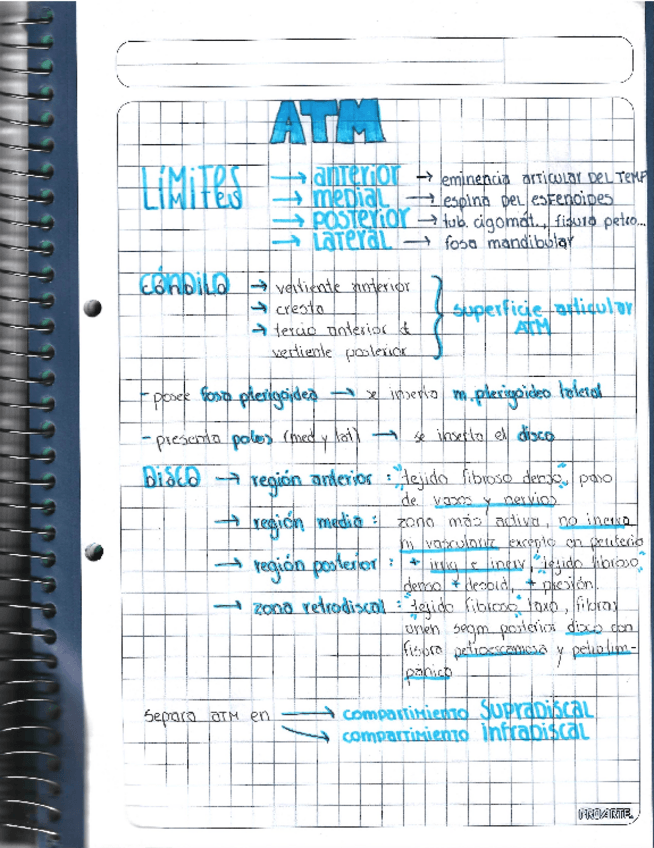 ATM
LÍMITES → anterior → eminencia articular DEL TEMP
→ MEDIAL → espina DEL esfenoides
→ POSTERIOR → tub. cigomát.., fisura petro...
→ LATERAL → fosa mandibular
CÓNDILO → vertiente anterior
→ cresta
→ tercio anterior d
vertiente posterior
superficie articular
ATM
- posee fosa pterigoidea → se inserta m. pterigoideo lateral
- presenta polos (med y lat) → se inserta el disco
DISCO → región anterior : "tejido fibroso denso", paso
de vasos y nervios
→ región media : zona más activa, no inerva
ni vasculariz excepto en periferia
→ región posterior : + irrig e inerv, "tejido fibroso"
denso + desoid, + presión.
→ zona retrodiscal : "tejido fibroso" laxo, fibras
unen segm posterior disco con
fisura petroescamosa y petrotim-
pánica
Separa ATM en → compartimiento SUPRADISCAL
→ compartimiento INFRADISCAL
PROARTE.